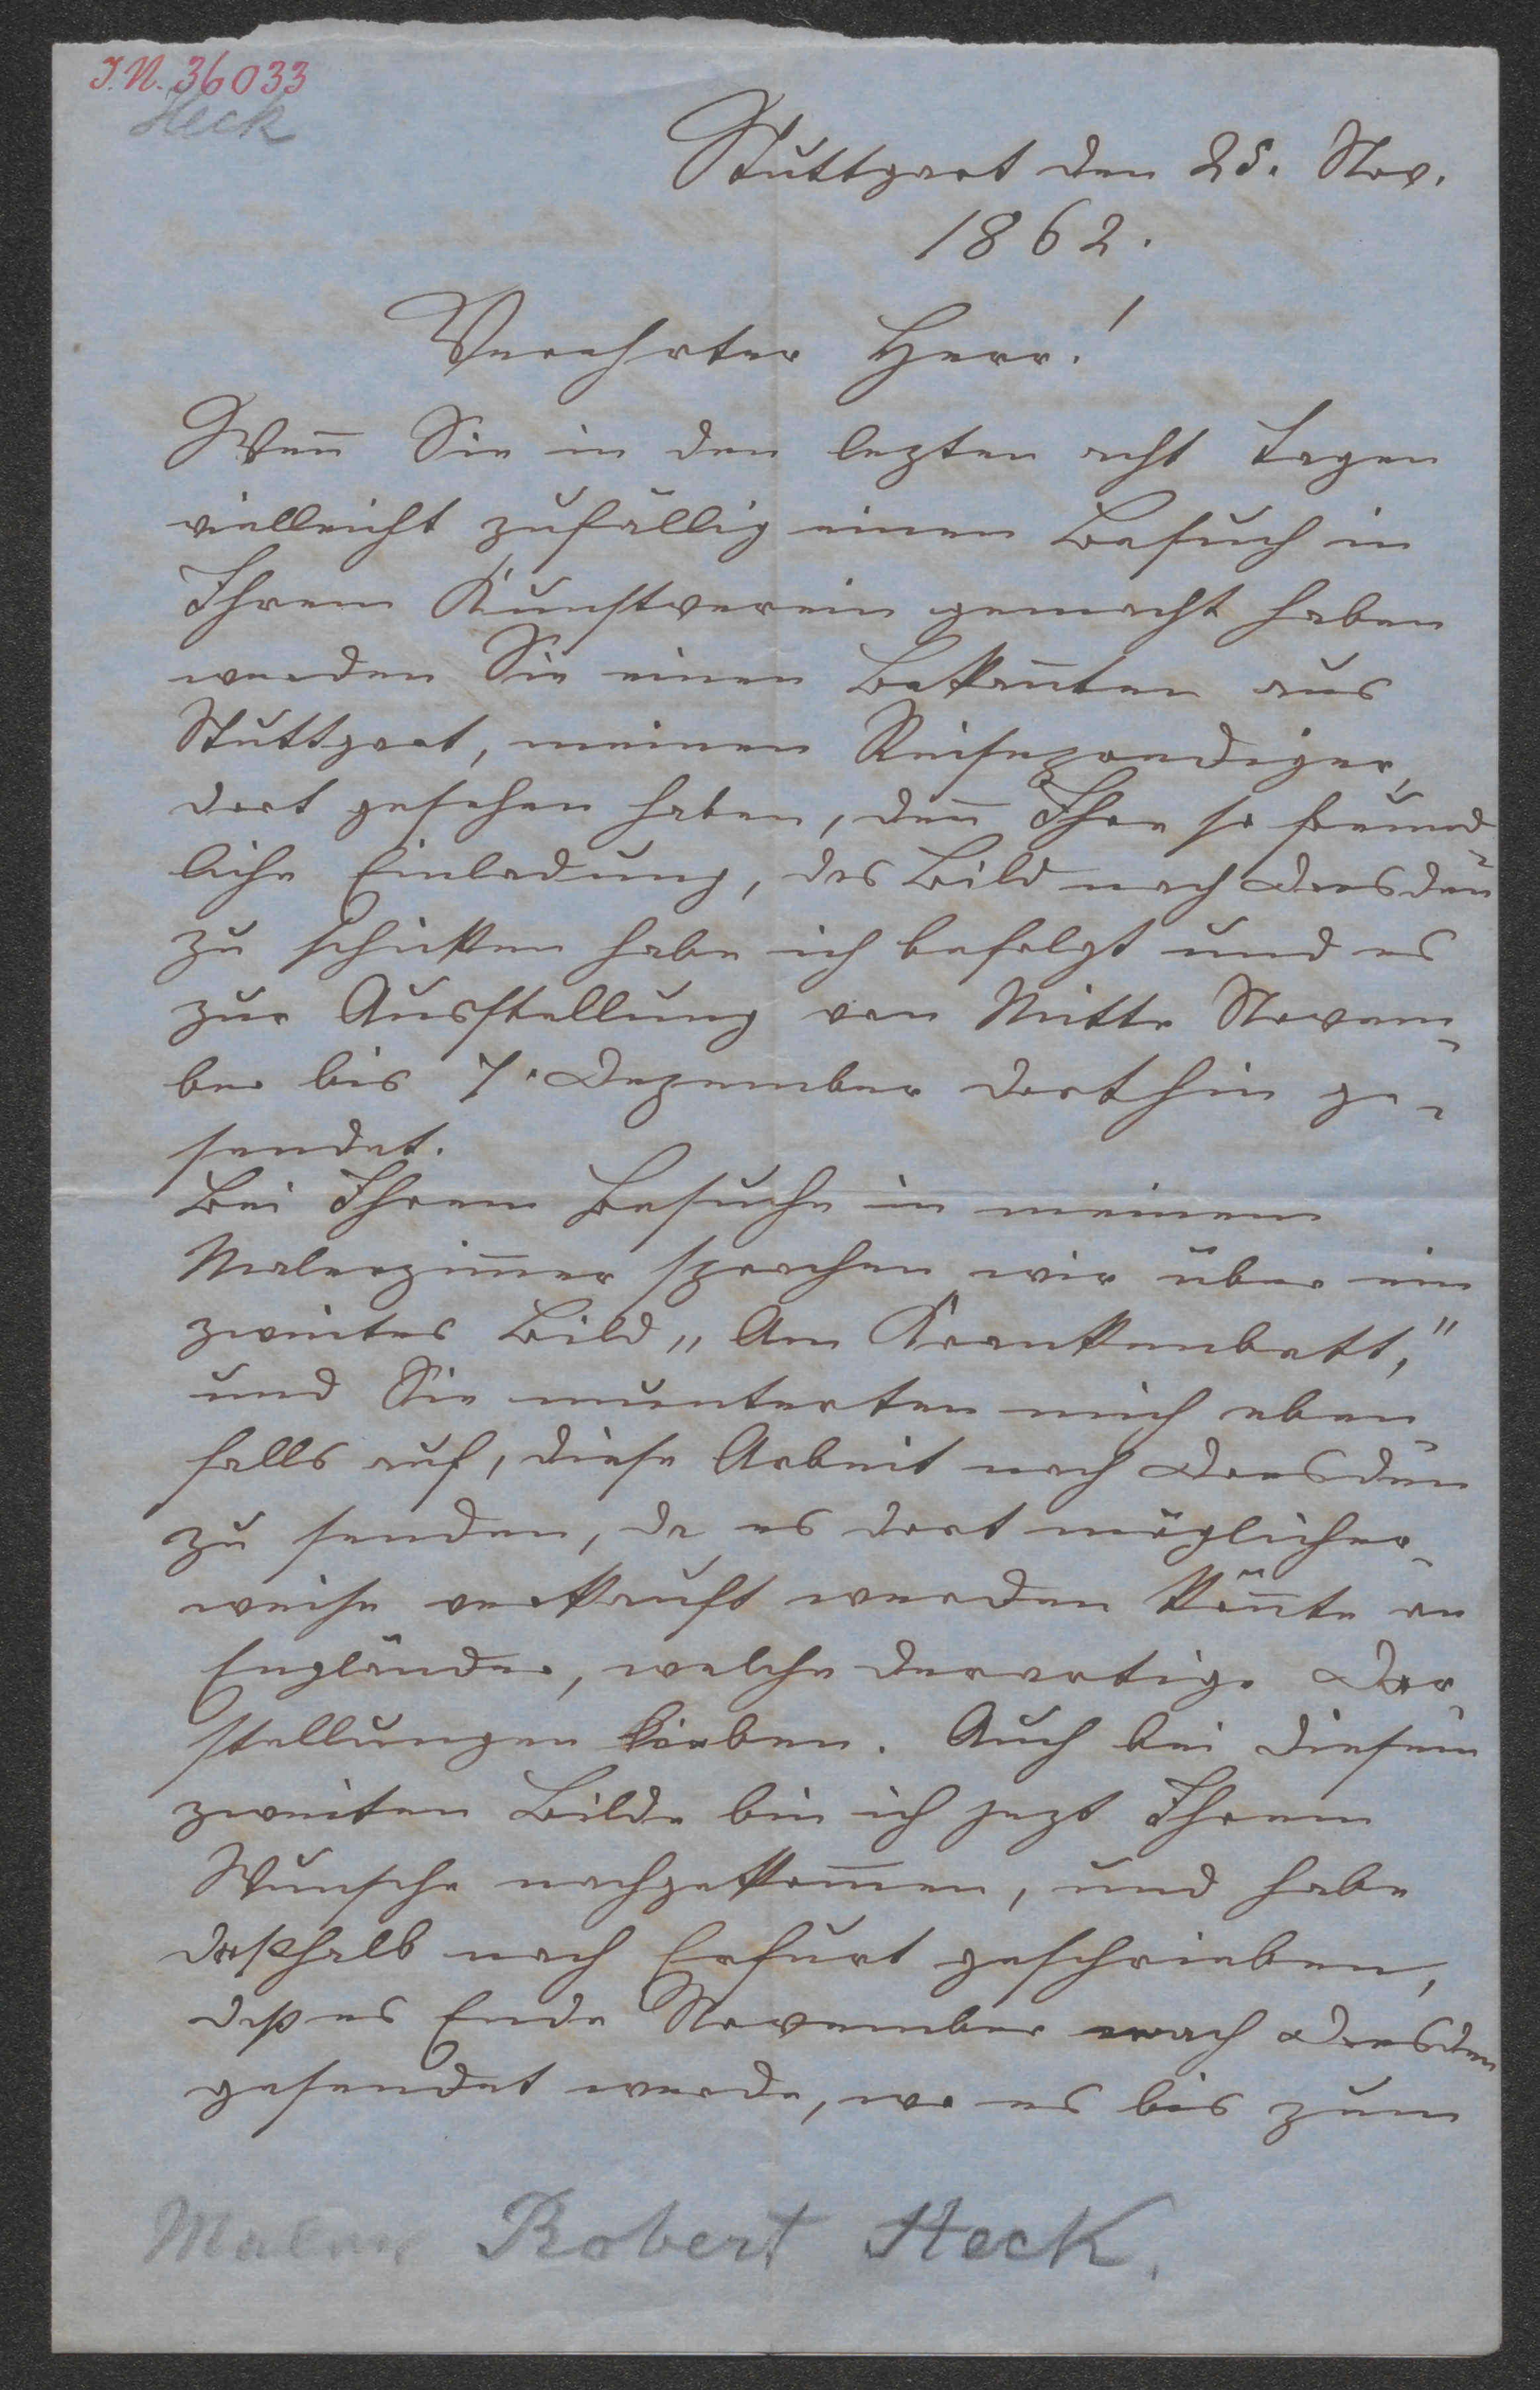 I.N. 36033
Heck
Stuttgart den 25. Nov.
1862.
Verehrter Herr!
Weñ Sie in den lezten acht Tagen
vielleicht zufällig einen Besuch in
Ihrem Kunstverein gemacht haben
werden Sie einen Bekañten aus
Stuttgart, meinen Reiseprediger,
dort gesehen haben, deñ Ihre so freund-
liche Einladung, das Bild nach Dresden
zu schikken habe ich befolgt und es
zur Ausstellung von Mitte Novem-
ber bis 7. Dezember dorthin ge-
sendet.
Bei Ihrem Besuche in meinem
Malerzim̄er sprachen wir über ein
zweites Bild „Am Krankenbett,"
und Sie munterten mich eben-
falls auf, diese Arbeit nach Dresden
zu senden, da es dort möglicher-
weise verkauft werden köñte an
Engländer, welche derartige Dar-
stellungen lieben. Auch bei diesem
zweiten Bilde bin ich jezt Ihrem
Wunsche nachgekom̄en, und habe
deßhalb nach Erfurt geschrieben,
daß es Ende November nach Dresden
gesendet werde, wo es bis zum
Maler Robert Heck.